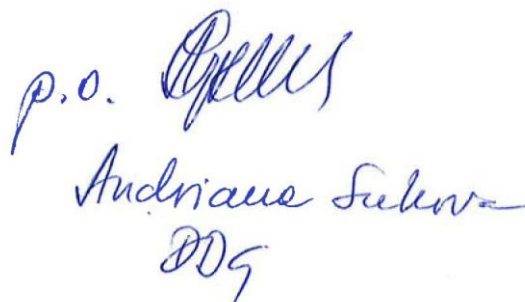 p.o.
Andriana Sukova
DDG